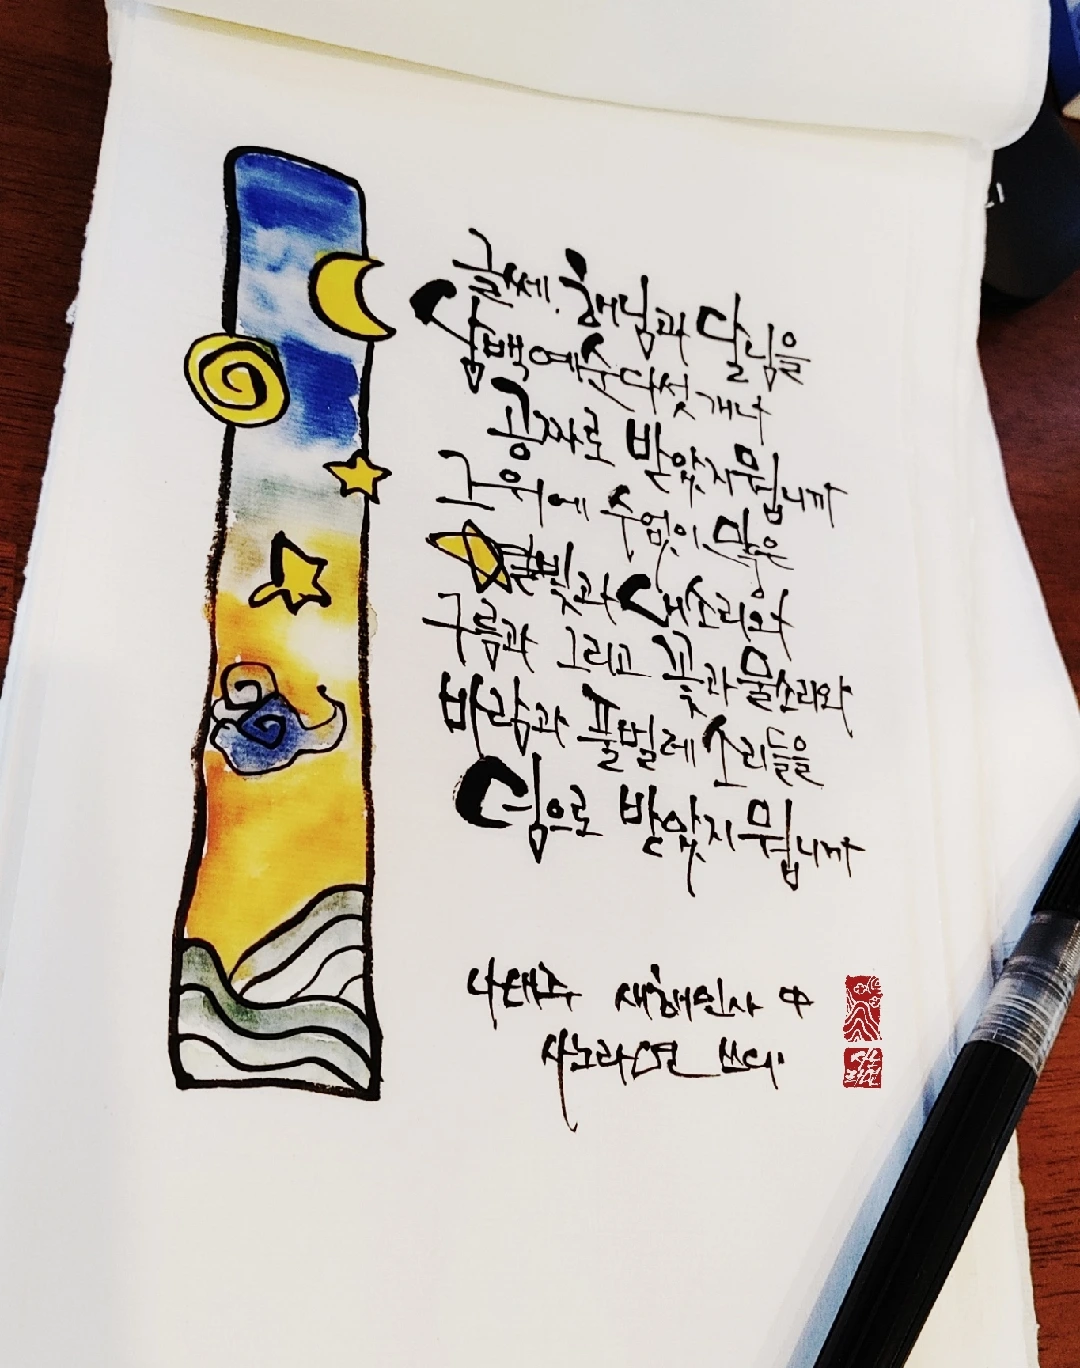 글쎄, 해님과 달님을
삼백예순다섯 개나
공짜로 받았지 뭡니까
그 위에 수없이 많은
별빛과 새소리와
구름과 그리고 꽃과 물소리와
바람과 풀벌레 소리들을
덤으로 받았지 뭡니까
나태주 새해인사 中
사노라면 쓰다